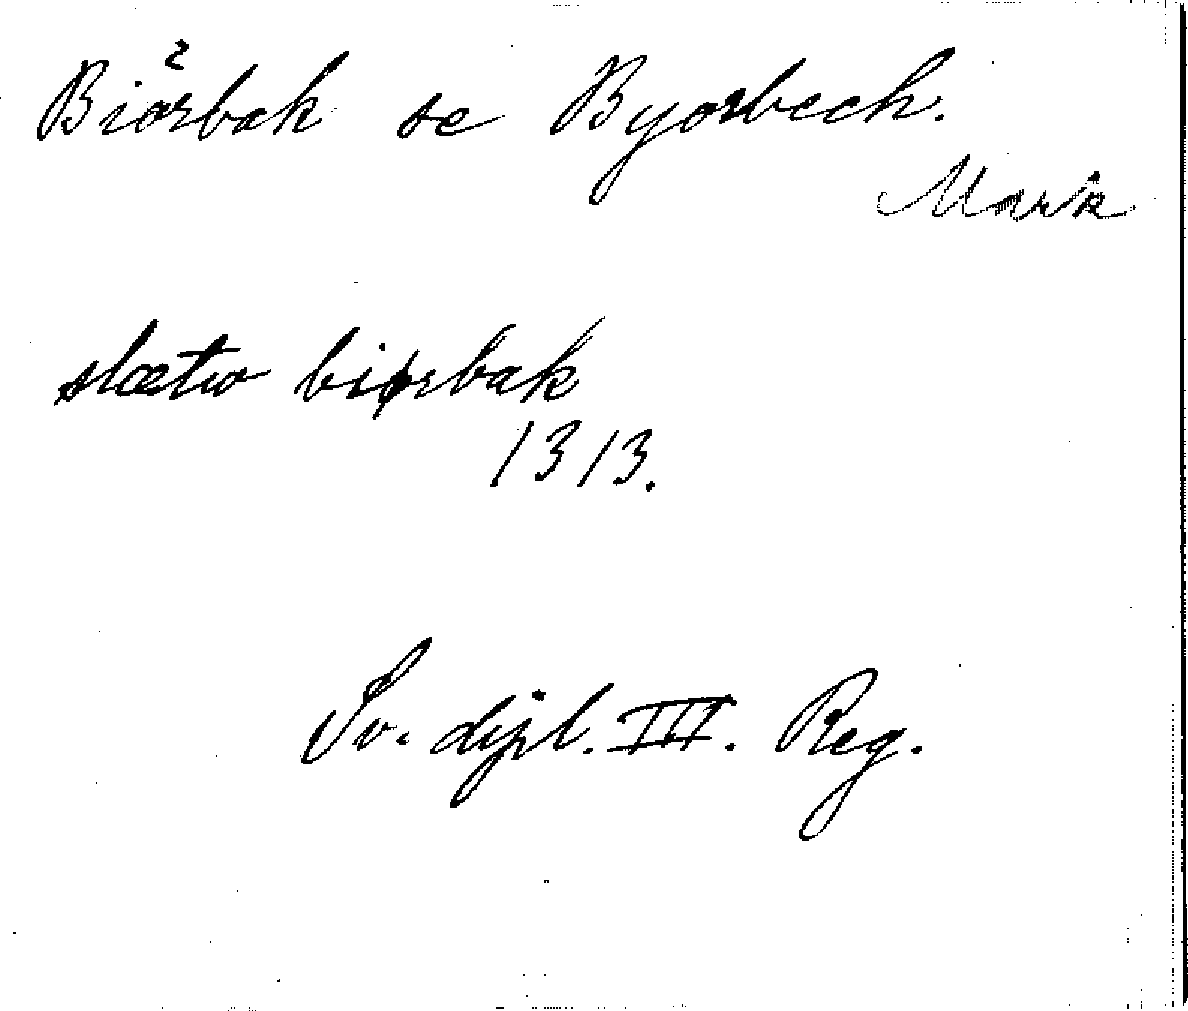 Biǒrbak se Byorbech.
Mark
slætw biørbak
1313.
Sv. dipl. III. Reg.